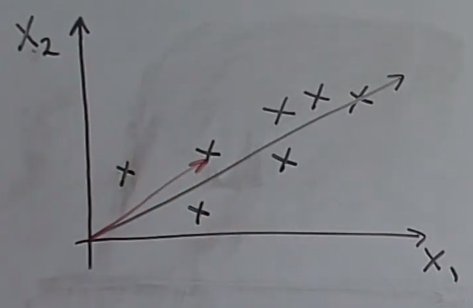 X₂
X₁